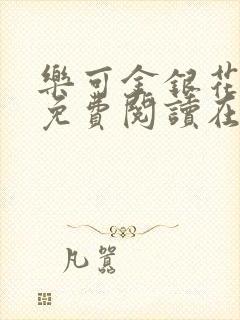 樂可金銀花
免費閱讀在
凡囂